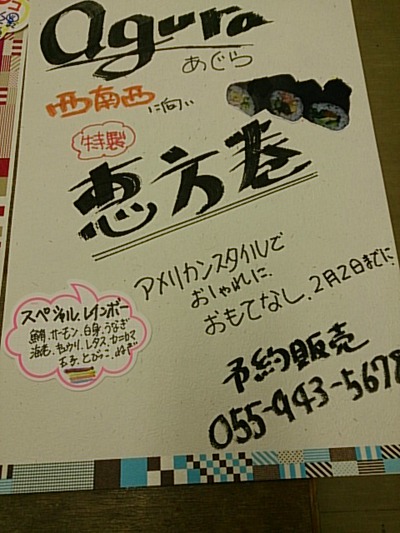 agura
あぐら
西南西
に向い
特製
恵方巻
アメリカンスタイルで
おしゃれに
おもてなし、2月2日までに
スペシャルレインボー
鮪、サーモン、白身、うなぎ
海老、キュウリ、レタス、カニカマ
玉子、とびっこ、ねぎ
予約販売
055-943-5678